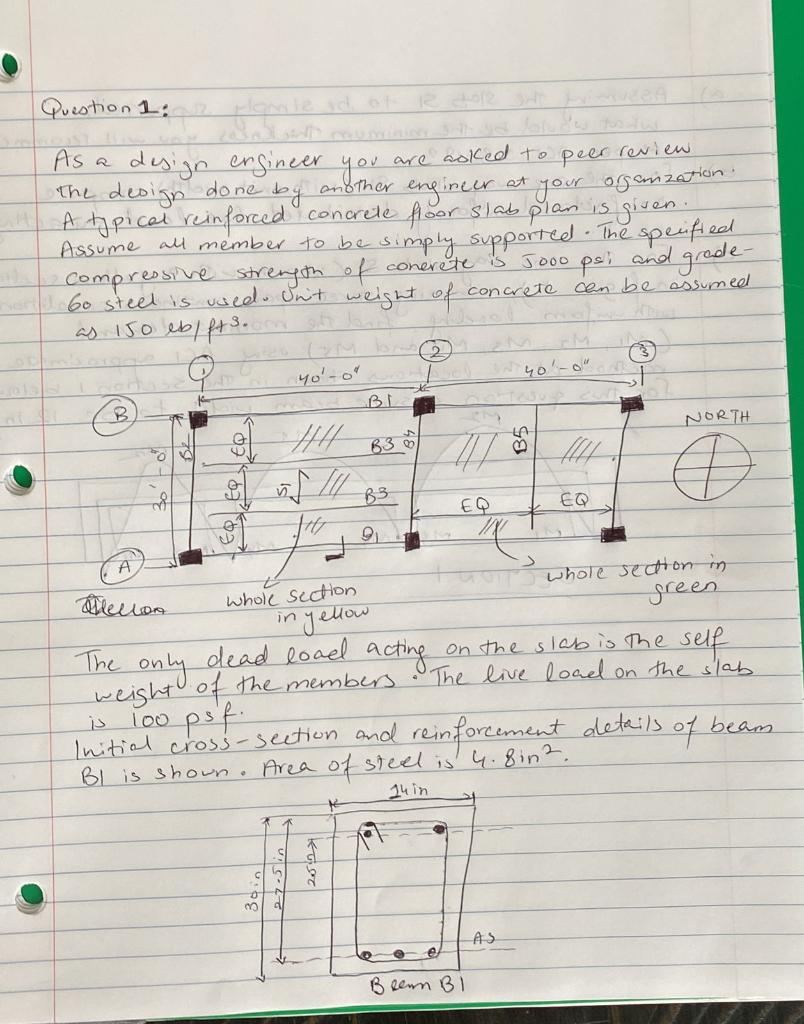 Question 1:
As a design engineer you are asked to peer review
the design done by another engineer at your organization.
A typical reinforced concrete floor slab plan is given.
Assume all member to be simply supported. The specified
compressive strength of concrete is 5000 psi and grade-
60 steel is used. Unit weight of concrete can be assumed
as 150 lb/ft3.
1
2
3
40'-0"
40'-0"
B
B1
NORTH
30'-0"
B4
EQ
B3
B4
B5
EQ
S1
B3
EQ
EQ
EQ
A
whole section
in yellow
whole section in
green
The only dead load acting on the slab is the self
weight of the members. The live load on the slab
is 100 psf.
Initial cross-section and reinforcement details of beam
B1 is shown. Area of steel is 4.8in2.
14in
30in
27.5in
2.5in
AS
Beam B1